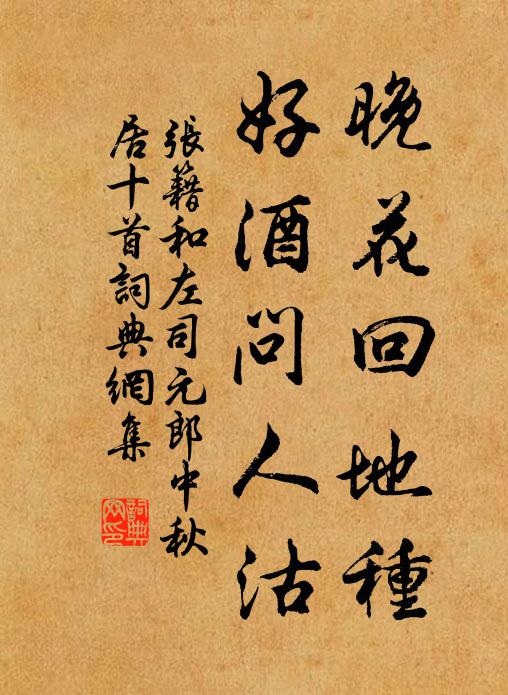 晚花回地種
好酒問人沽
張籍和左司元郎中秋
居十首詞典網集
詞典
网印